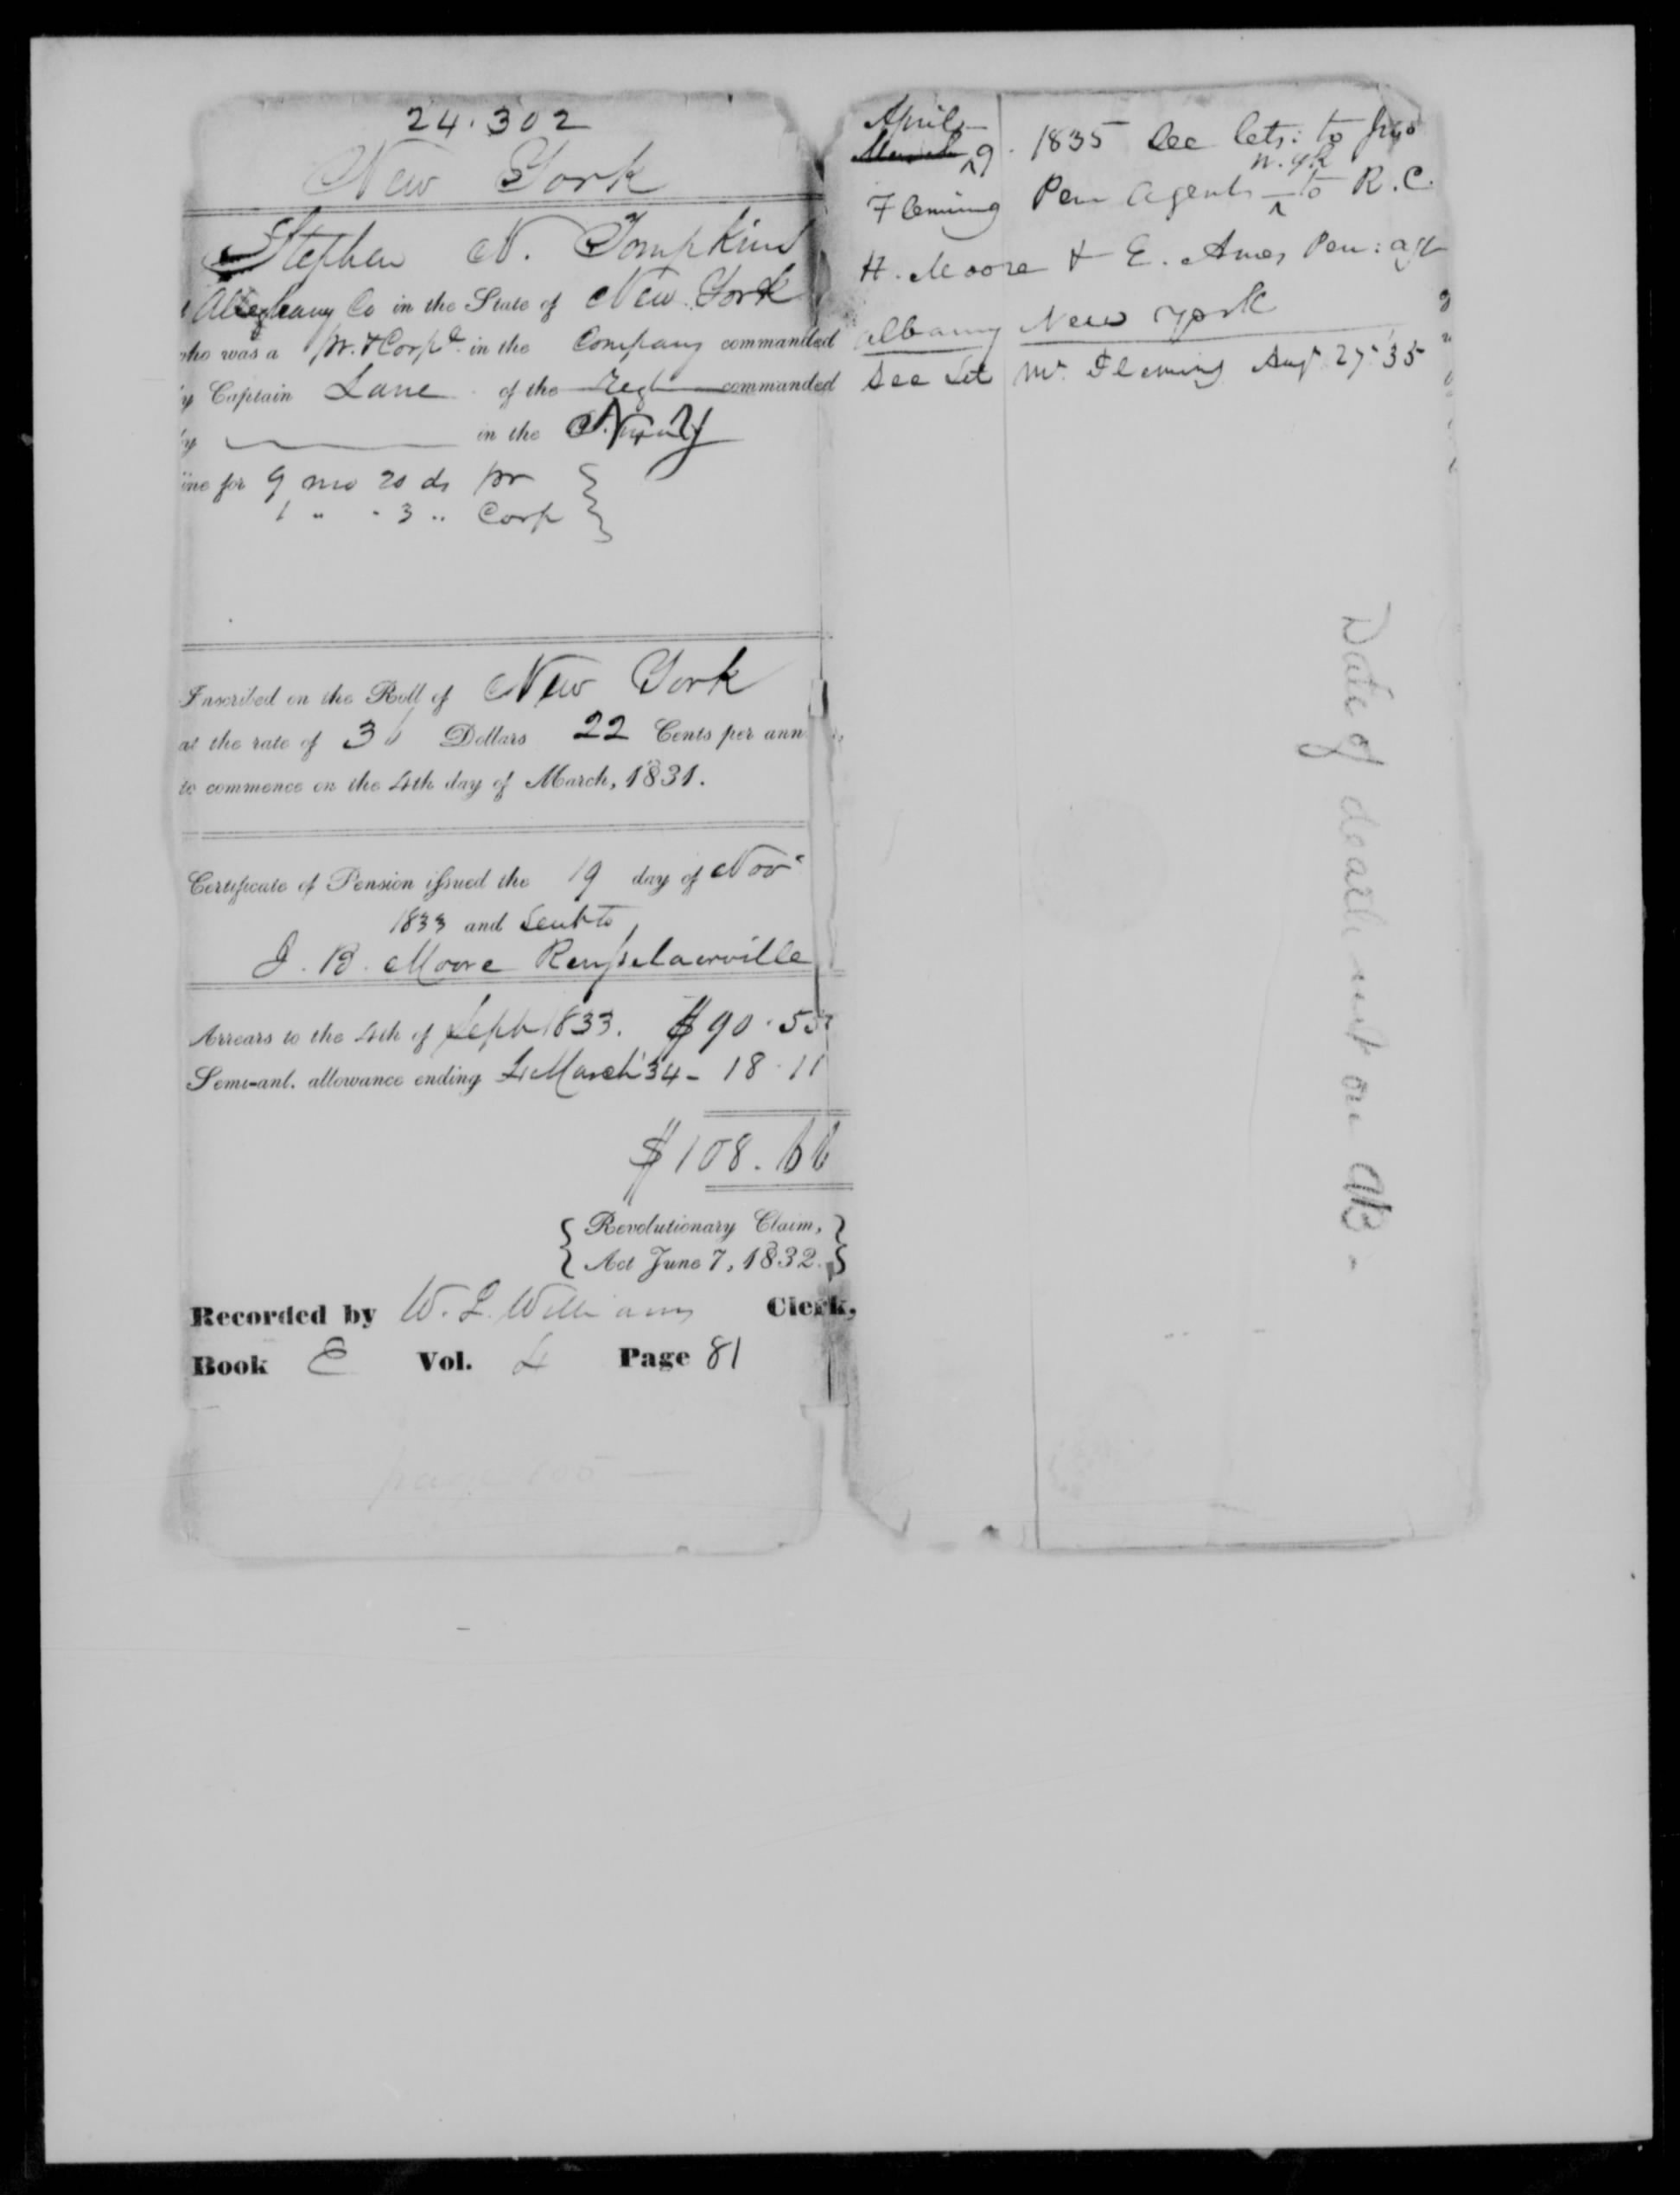 24.302
New York
Stephen N. Tompkins
Allegheany Co in the State of New York
who was a pr. & Corpl. in the Company commanded
by Captain Lane of the Regt commanded
by in the N. York
line for 9 mo 20 ds pr
1 " " 3 " Corp
Inscribed on the Roll of New York
at the rate of 36 Dollars 22 Cents per ann
to commence on the 4th day of March, 1831.
Certificate of Pension issued the 19 day of Nov
1833 and Sent to
J. B. Moore Rensselaerville
Arrears to the 4th of Sept 1833. $90.55
Semi-anl. allowance ending 4 March '34 - 18.11
$108.66
Revolutionary Claim,
Act June 7, 1832.
Recorded by W. L. Williams Clerk,
Book E Vol. 4 Page 81
April
March 9. 1835 See lets: to Jno
N. Yk
Fleming Pen Agents to R. C.
H. Moore & E. Ames Pen: agt
Albany New York
See Let Mr. Fleming Augt 27. '35
Date of death not on